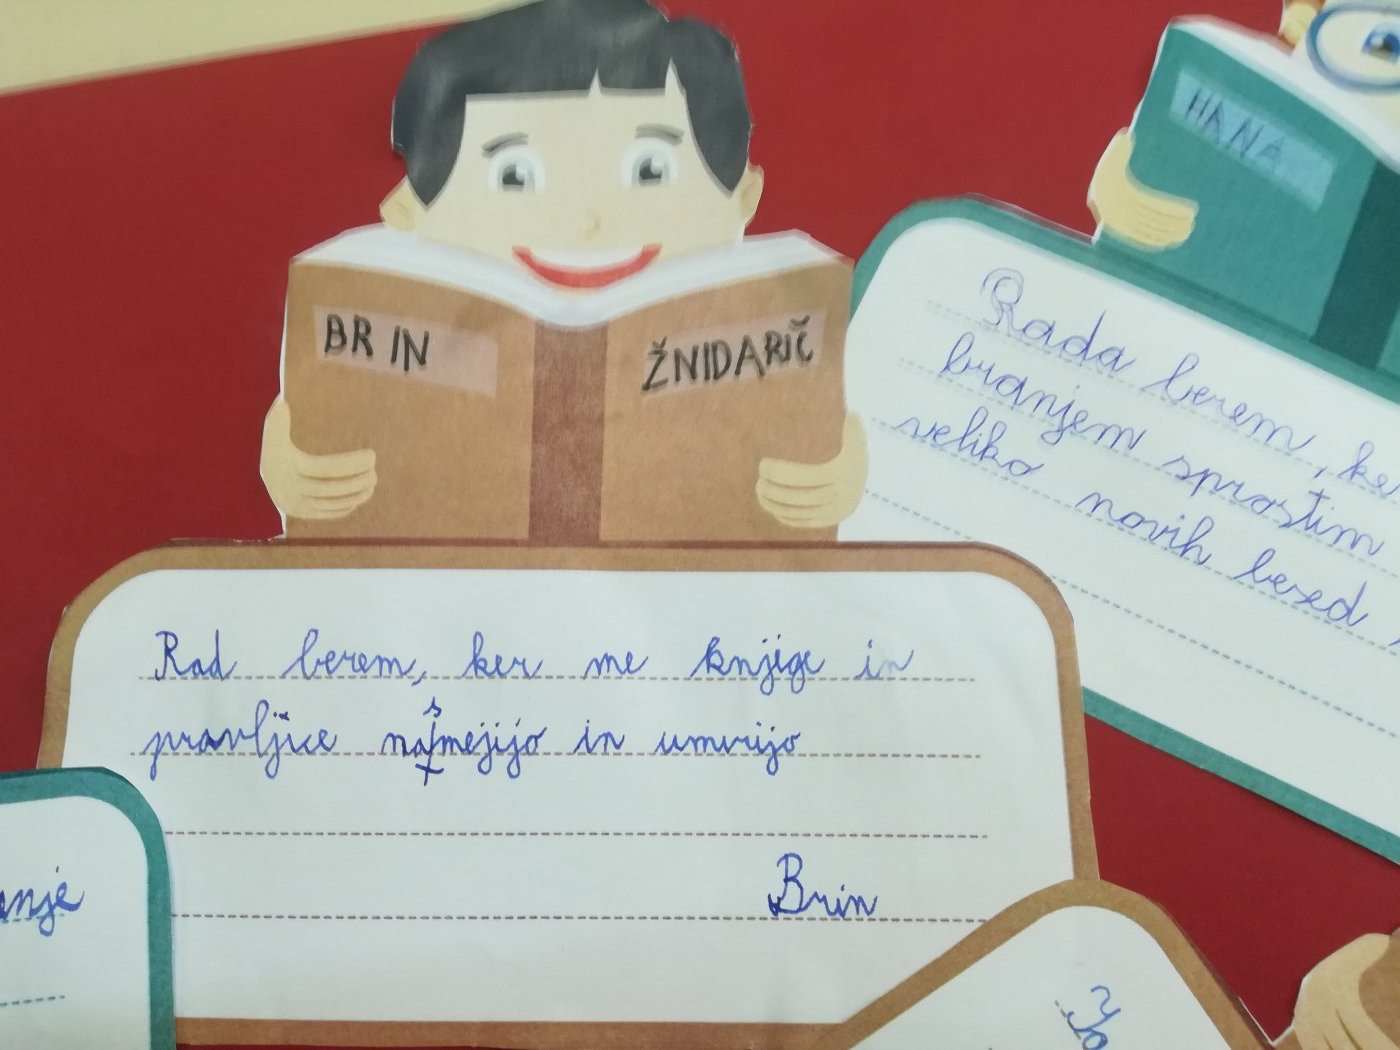 BRIN ŽNIDARIČ
Rad berem, ker me knjige in
pravljice nasmejijo in umirijo
Brin
HANA
Rada berem, ker
branjem sprostim
veliko novih besed
anje